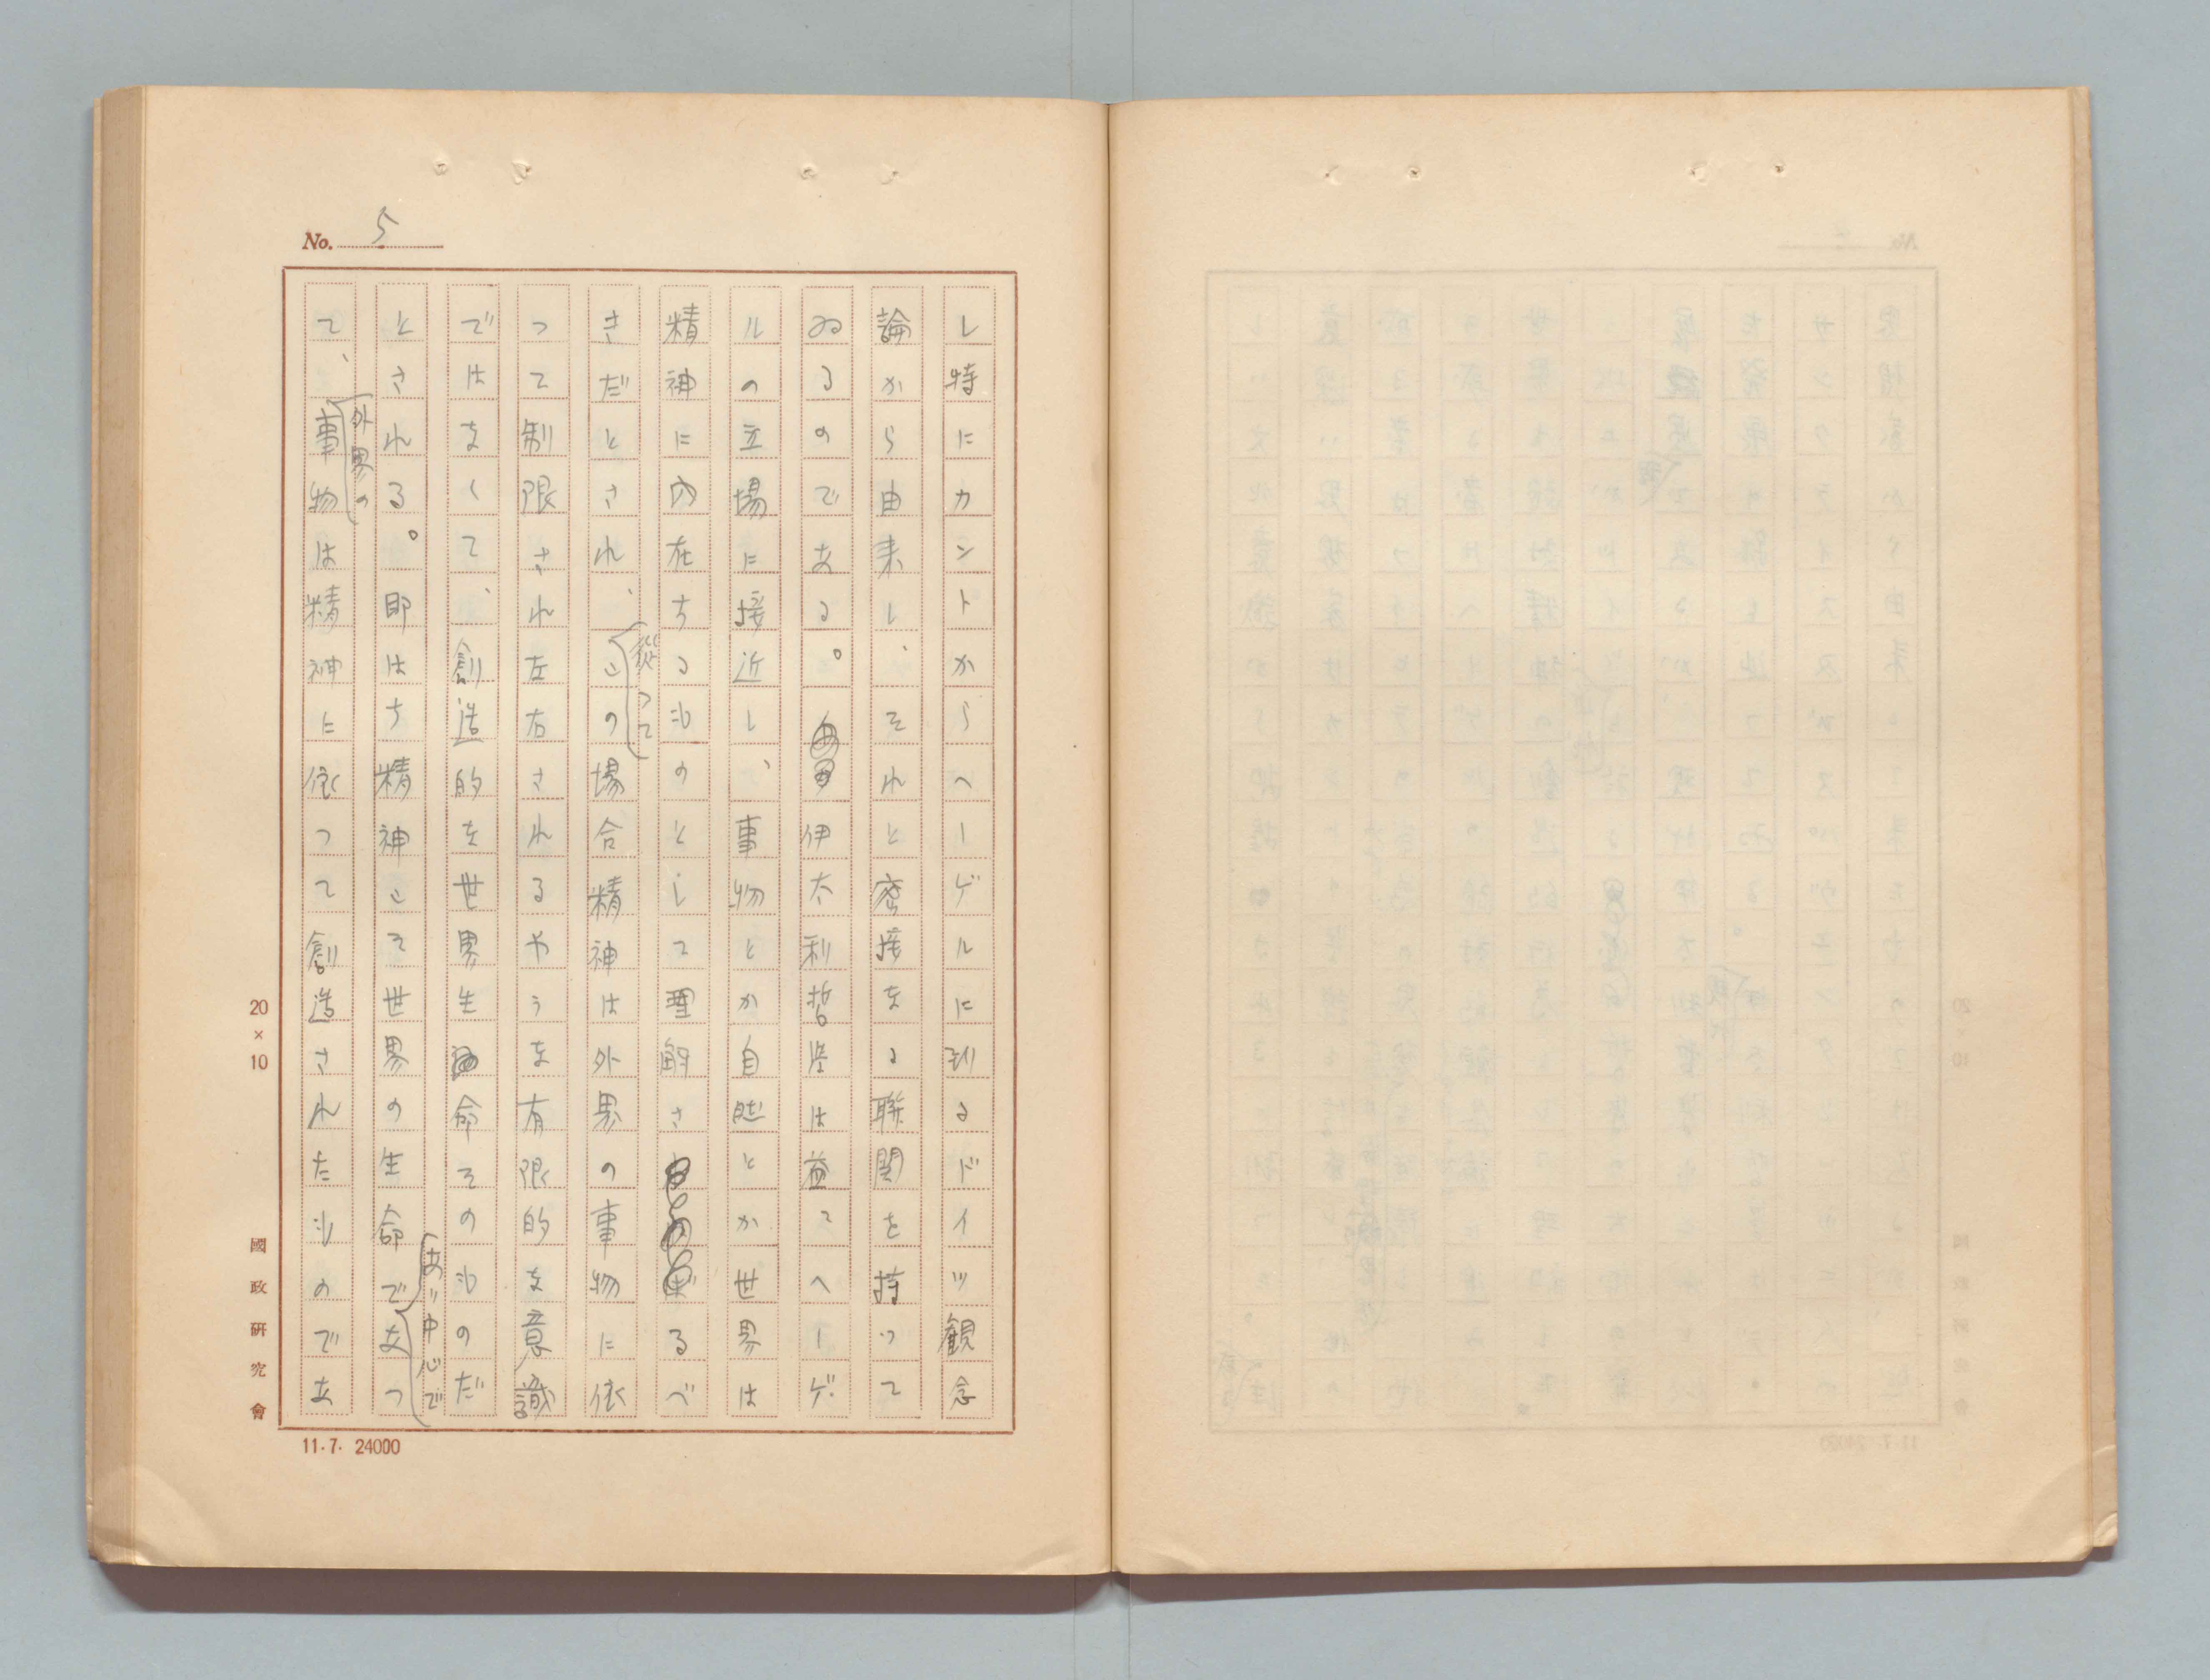 No. 5
し特にカントからヘーゲルに到るドイツ観念
論から由来し、それと密接なる聯関を持つて
ゐるのである。伊太利哲学は益々ヘーゲ
ルの立場に接近し、事物とか自然とか世界は
精神に内在するものとして理解さるべ
きだとされ、
従つて
この場合精神は外界の事物に依
つて制限され左右されるやうな有限的な意識
ではなくて、創造的な世界生命そのものだ
とされる。即はち精神こそ世界の生命で
あり中心で
あつ
て、
外界の
事物は精神に依つて創造されたものであ
20×10
國政研究會
11.7. 24000